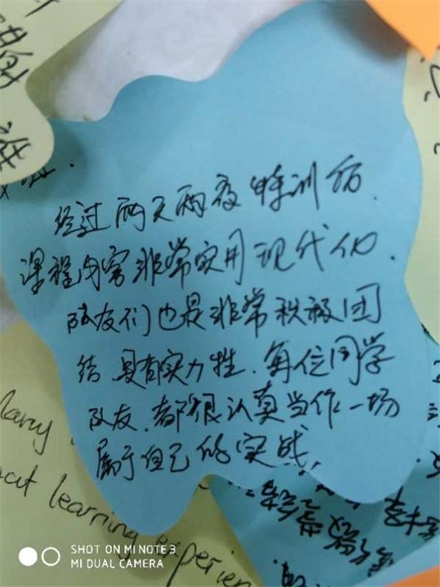 经过两天两夜特训后.
课程内容非常实用现代化.
队友们也是非常积极团
结.具有实力性.每位同学
队友.都很认真当作一场
属于自己的实战.
learning experien
SHOT ON MI NOTE 3
MI DUAL CAMERA